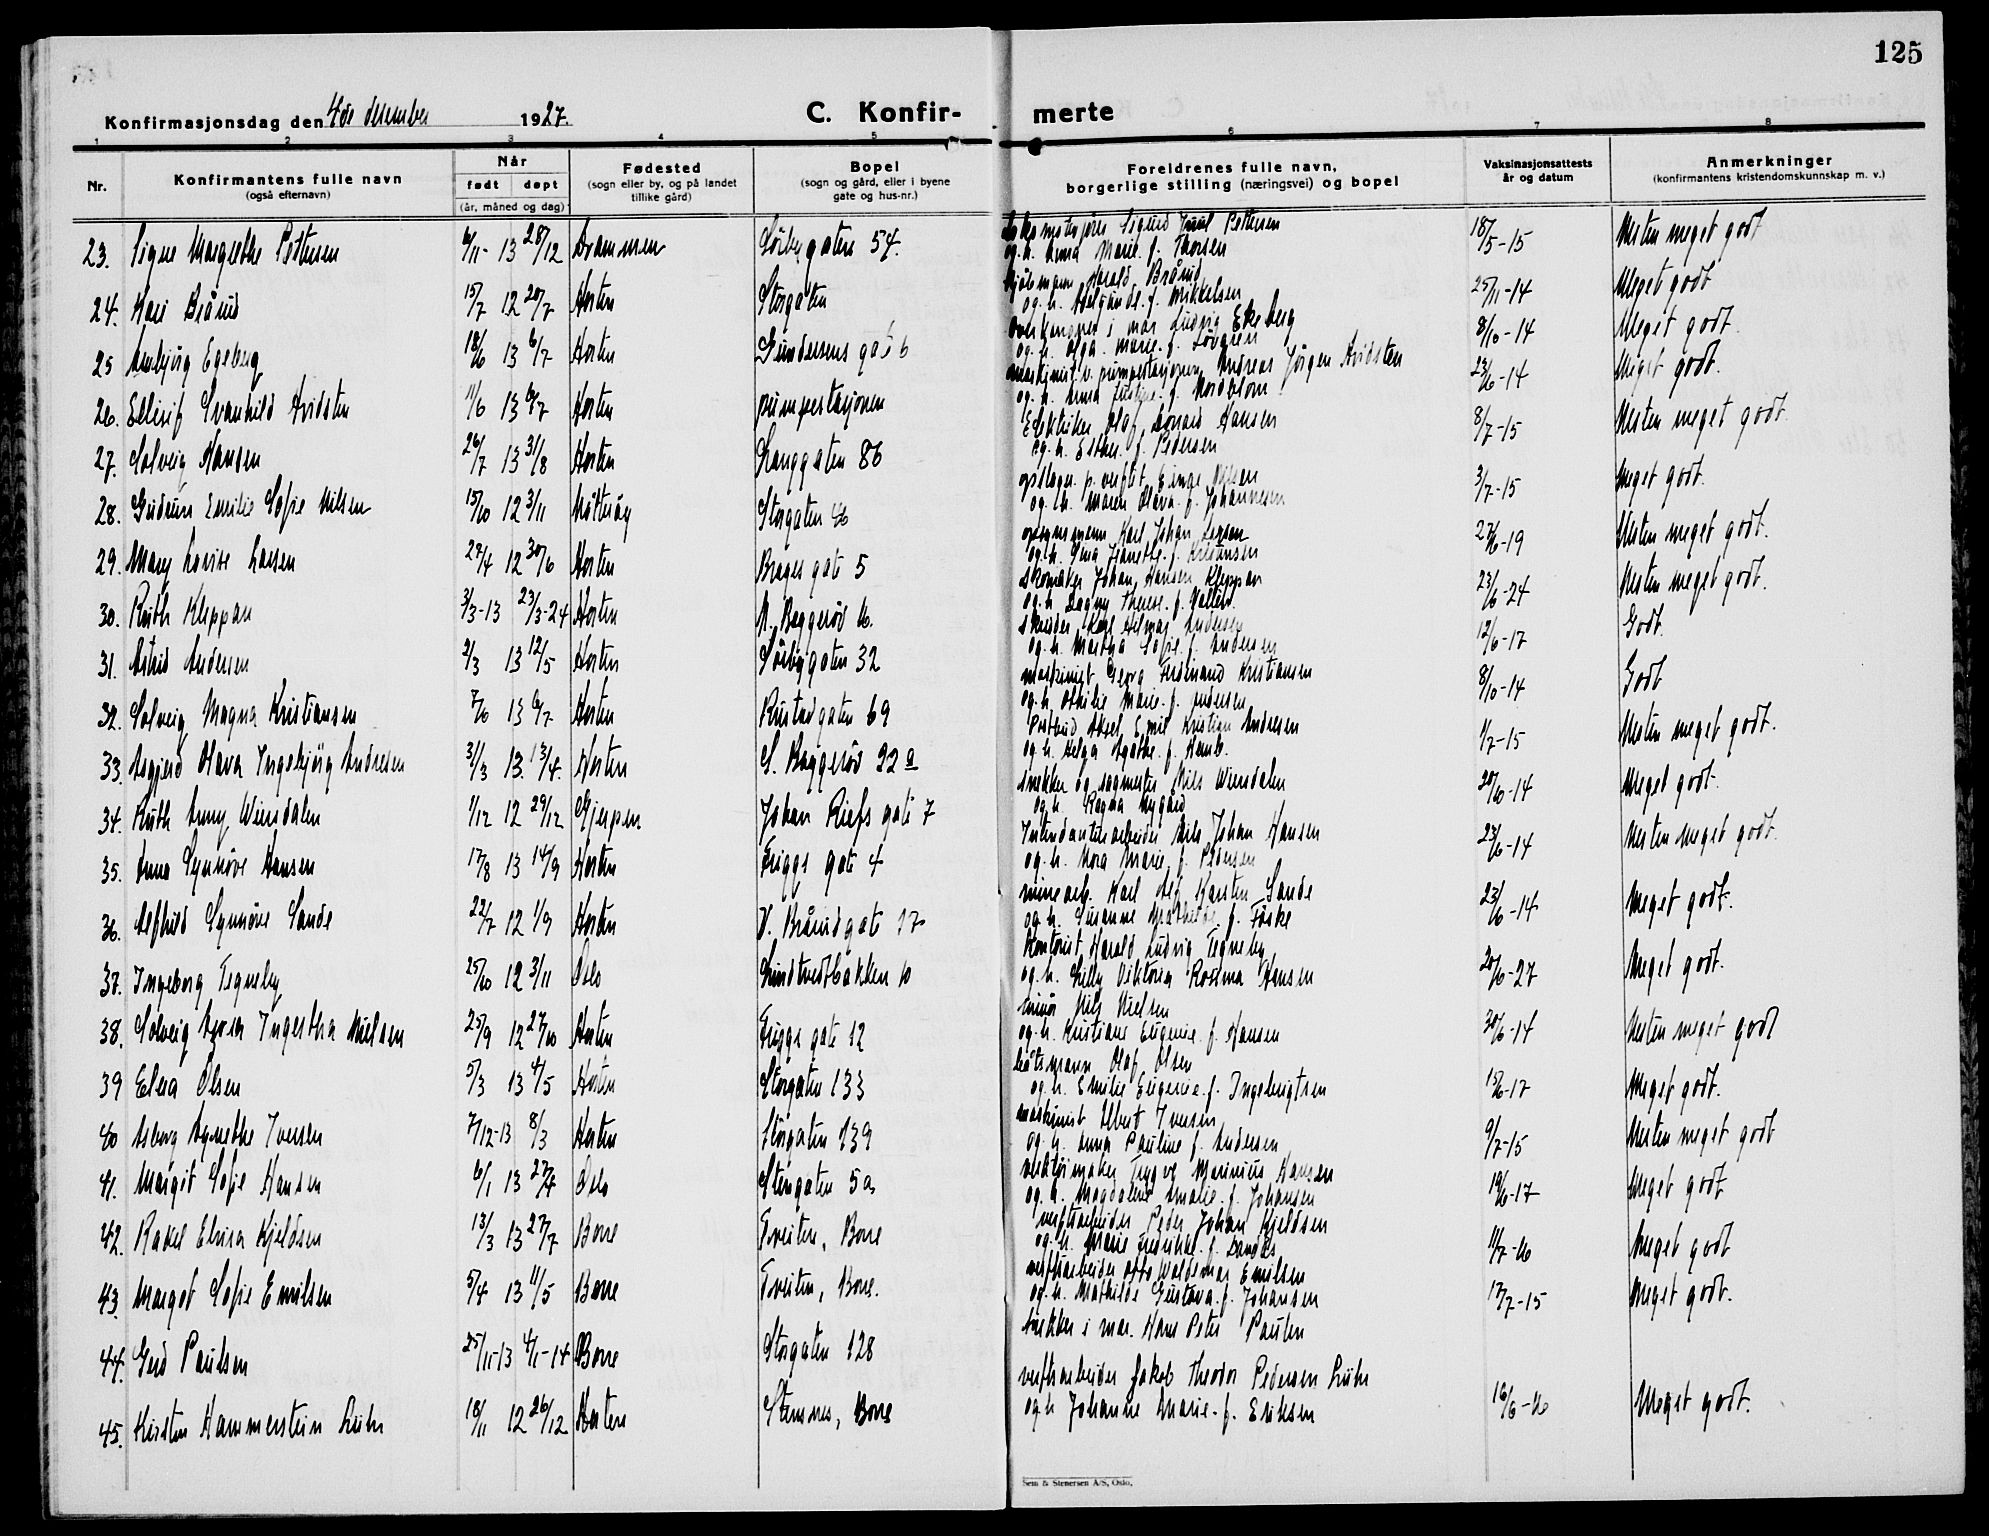 125
Konfirmasjonsdag den 4de desember 1927.
C. Konfir-
merte
1 2 3 4 5 6 7 8
Nr.
Konfirmantens fulle navn
(også efternavn)
Når
født døpt
(år, måned og dag)
Fødested
(sogn eller by, og på landet
tillike gård)
Bopel
(sogn og gård, eller i byene
gate og hus-nr.)
Foreldrenes fulle navn,
borgerlige stilling (næringsvei) og bopel
Vaksinasjonsattests
år og datum
Anmerkninger
(konfirmantens kristendomskunnskap m. v.)
23. Signe Margrethe Pettersen 6/11- 13 28/12 Drammen Sörbygaten 54. Sigurd Juul Pettersen 18/5-15 Nesten meget godt
og h. Anna Marie. f. Thorsen
24. Kari Brårud 15/7 12 20/7 Horten Storgaten Harald Brårud 25/11-14 Meget godt
og h. f. Mikkelsen
25 Ambjörg Egeberg 18/6 13 6/7 Horten Gundersens i mar. Ludvig Ekeberg 8/10-14 Meget godt.
og h. Olga Marie. f. Lövgren
26. Ellisif Svanhild Avidsten 11/6 13 6/7 Horten pumpestasjonen maskinist v. pumpestasjonen Andreas Jörgen Avidsten 23/6-14 Meget godt.
og h. Anna Justine. f. Nordblom
27. Solveig Hansen 26/7 13 31/8 Horten Langgaten 86 Elektriker Olaf Hansen 8/7-15 Nesten meget godt.
og h. Esther. f. Pedersen
28. Gudrun Emilie Sofie Nilsen 15/10 12 3/11 Nötteröy Storgaten p. verftet Einar Nilsen 3/7-15 Meget godt.
og h. Maren Olava. f. Johannesen
29. Mary Lovise Larsen 24/4 12 30/6 Horten Brages gate 5 Karl Johan Larsen -19 Nesten meget godt.
og h. Gina Jeanette. f. Kristiansen
30. Ruth Kleppan 3/3-13 23/3-24 Horten N. Baggeröd skomaker Johan Hansen Kleppan 23/6-24 Nesten meget godt.
og h. Dagny Therese. f.
31. Astrid Andersen 2/3 13 12/5 Horten Sörbygaten 32 Karl Hilmar Andersen 12/6-17 Godt.
og h. Martha Sofie. f. Andersen
32. Solveig Magna Kristiansen 7/6 13 6/7 Horten Rustadgaten 69 maskinist Georg Ferdinand Kristiansen 8/10-14 Godt
og h. Othilie Marie. f. Andersen
33. Asgjerd Olava Ingebjörg Andresen 31/3 13. 13/4. Horten S. Baggeröd 22a Postbud Aksel Emil Kristian Andresen 1/7-15 Nesten meget godt.
og h. Helga Agathe. f.
34. Ruth Anny Wiersdalen 1/12 12 29/12 Gjerpen Johan Riefs gate 7 snekker og sagmester Nils Wiersdalen 20/6-14 Meget godt.
og h. Ragna Nygård
35. Anna Synnöve Hansen 17/8 13 14/9 Horten Friggs gate 4 Intendantursarbeider Nils Johan Hansen 23/6-14 Nesten meget godt.
og h. Nora Marie. f. Pedersen
36. Alfhild Synnöve Sande 22/7 12 1/9 Horten V. Brårudgate 17 minearb. Karl Alf Karsten Sande 23/6-14 Meget godt.
og h. Susanne Mathilde. f. Foske
37. Ingeborg Tegneby 25/10 12 3/11 Oslo Lundtvedtbakken 10 Kontorist Harald Ludvig Tegneby 20/6-27 Meget godt.
og h. Lilly Viktoria Rosina Hansen
38. Solveig Ingertha Nielsen 25/9 12 27/10 Horten Friggs gate 12 minör Nils Nielsen 30/6-14 Nesten meget godt
og h. Kristiane Eugenie. f. Hansen
39 Elna Olsen 5/3 13 4/5 Horten Storgaten 133 båtsmann Olaf Olsen 15/6-17 Meget godt.
og h. Emilie Eugenie. f. Ingebrigtsen
40 Asborg Agnethe Iversen 7/12-13 8/3 Horten Storgaten 139 maskinist Albert Iversen 9/7-15 Nesten meget godt
og h. Anna Pauline f. Andersen
41. Margit Sofie Hansen 6/1 13 27/4 Oslo Storgaten 5a, verktöimaker Trygve Marinius Hansen 19/6-17 Meget godt
og h. Magdalene Amalie. f. Johansen
42. Rakel Elvira Kjeldsen 13/3 13 27/7 Borre Tveiten, Borre verftsarbeider Peder Johan Kjeldsen 11/7-16 Meget godt
og h. Marie Fredrikke. f.
43. Margot Sofie Emilsen 5/4 13 11/5 Borre Tveiten, Borre. verftsarbeider Otto Waldemar Emilsen 17/7-15 Meget godt.
og h. Mathilde Gustava. f. Johansen
44. Gerd Paulsen 25/11-13 4/1-14 Borre Storgaten 128 i mar. Hans Peter Paulsen
45. Kirsten Hammerstein Lühr 18/11 12 26/12 Horten Steinsnes, Borre verftsarbeider Jakob Theodor Pedersen Lühr 16/6-16 Meget godt.
og h Johanne Marie. f. Eriksen
Sem & Stenersen A/S, Oslo.